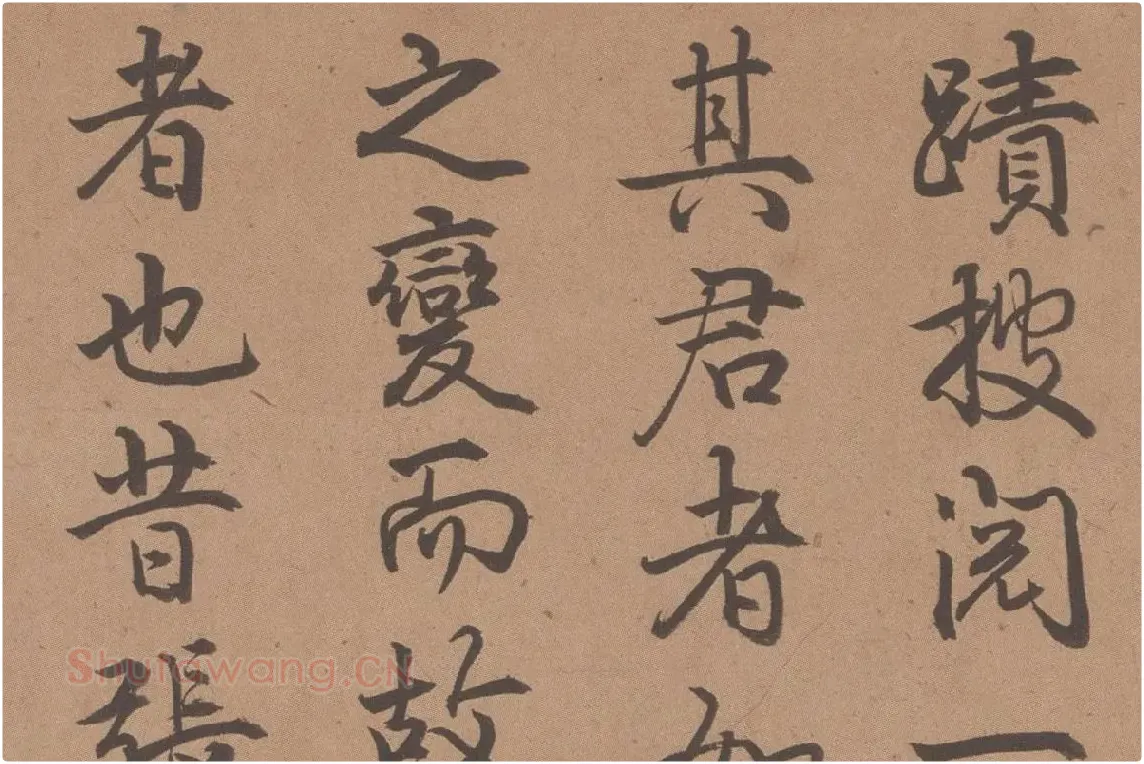 蹟搜閱一
其君者
之變而故
者也昔張
Shufawang.CN